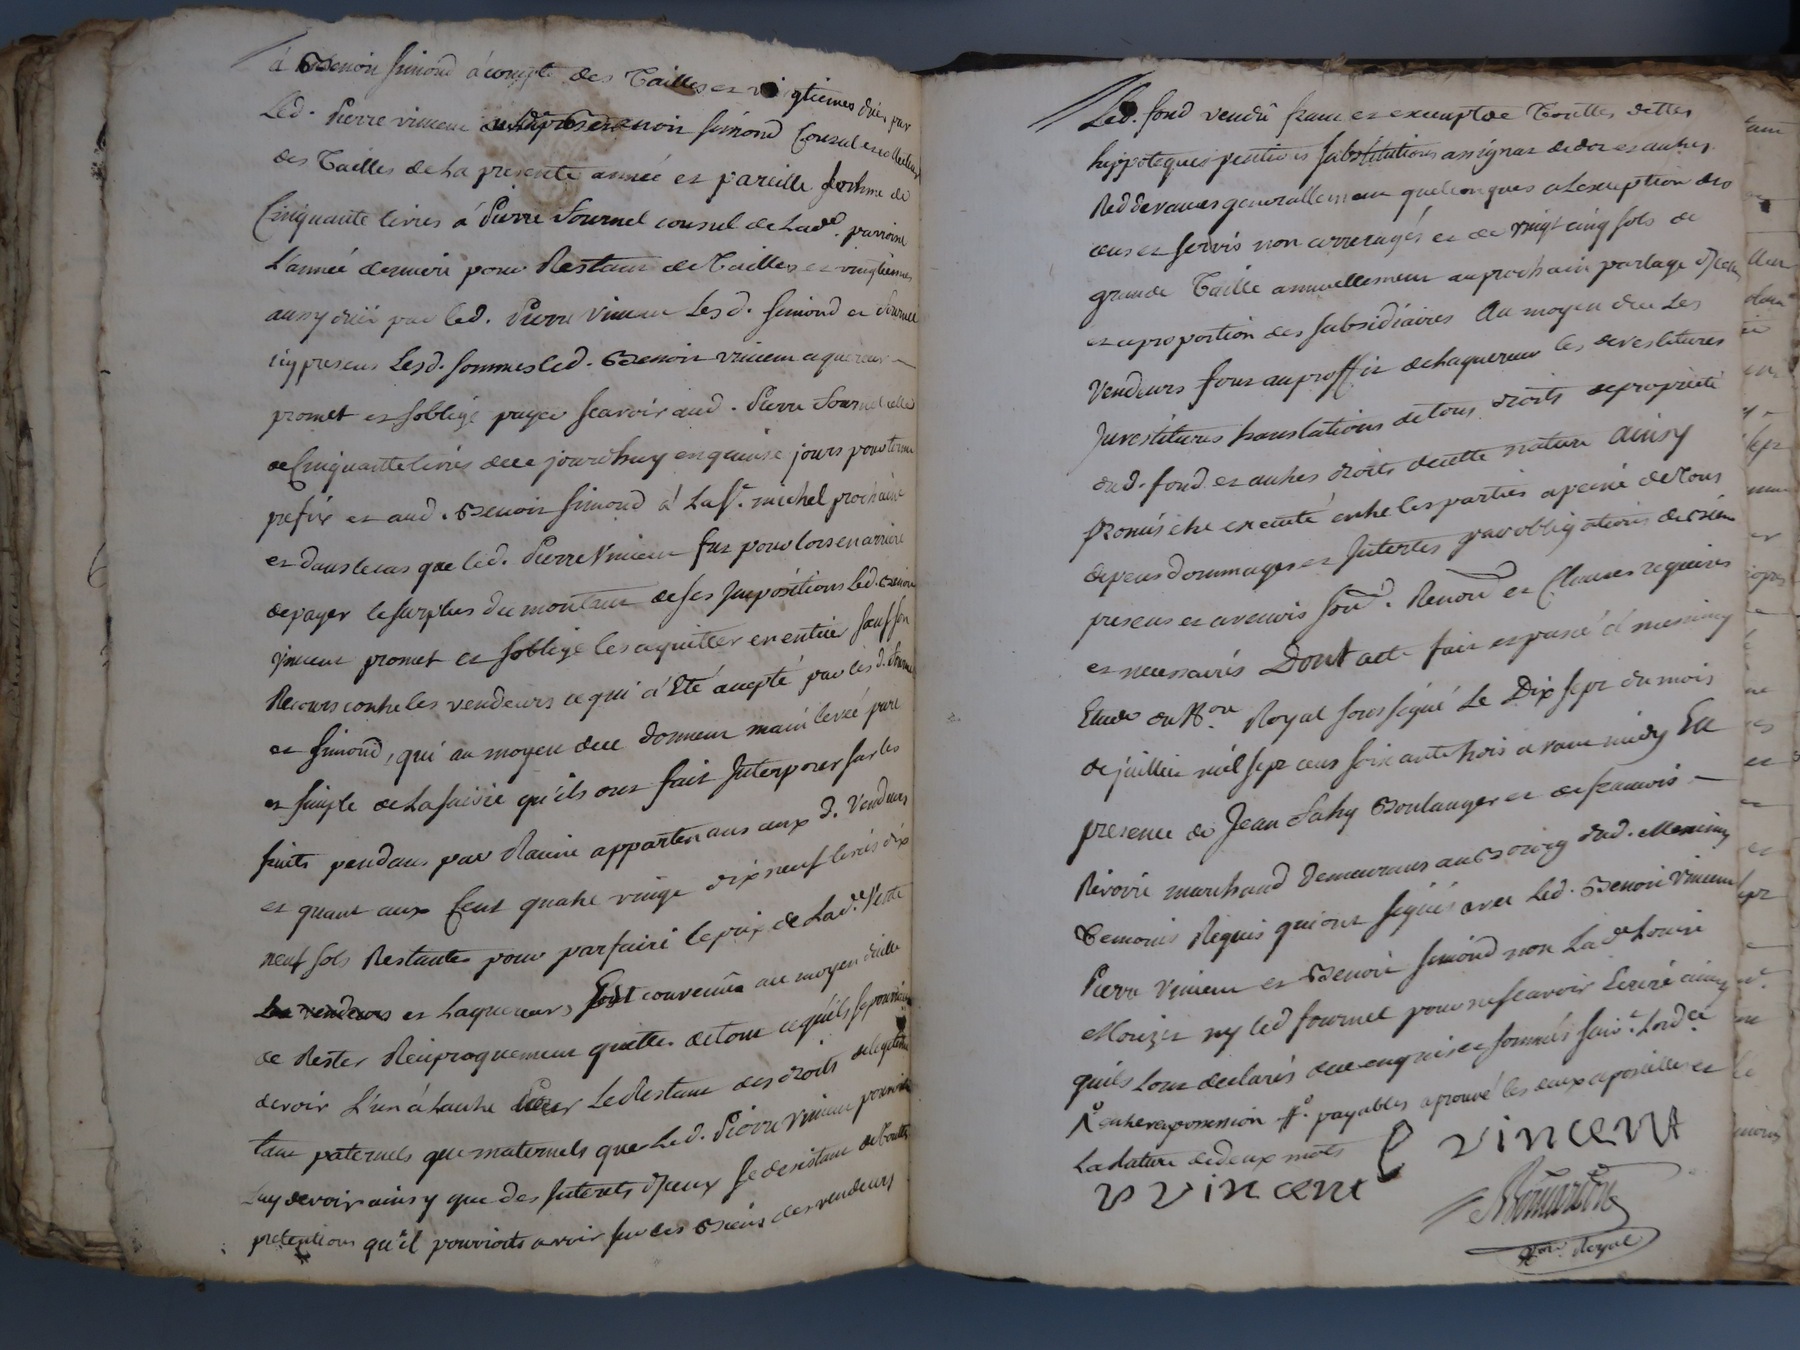 à Benoit simond à compte des Tailles et vingtiemes dües par
Led. Pierre vincent Benoit simond Consul et collecteur
des Tailles de La presente année et pareille somme de
Cinquante livres à Pierre fournel consul de Lade. parroisse
L'année derniere pour Restant de Tailles et vingtiemes
aussy düe par led. Pierre Vincent Lesd. simond et fournel
icy presens Lesd. sommes led. Benoit vincent aquereur
promet et soblige payer scavoir aud. Pierre fournel celle
de Cinquante livres de ce jourdhuy en quinse jours pour terme
prefix et aud. Benoit simond à La st. michel prochaine
et dans le cas que led. Pierre Vincent fut pour lors en arriere
de payer le surplus du montant de ses Impositions Led. Benoit
Vincent promet et soblige les aquitter en entier sauf son
Recours contre les vendeurs ce qui à Eté accepté par lesd. fournel
et simond, qui au moyen de ce donnent main levée pure
et simple de La saisie qu'ils ont fait Interposer sur les
fruits pendans par Racine appartenans aux d. Vendeurs
et quant aux Cent quatre vingt dix neuf livres dix
neuf sols Restantes pour parfaire le prix de Lade. Vente
Les vendeurs et Laquereur sont convenus au moyen d'icelle
de Rester Reciproquement quittes de tout ce qu'ils se pouvoient
devoir L'un à Lautre pour Le Restant des droits de legitime
tant paternels que maternels que Led. Pierre Vincent pouvoit
Luy devoir ainsy que des Interets d'jceux se desistant de touttes
pretentions qu'il pourroits avoir sur les Biens des vendeurs
Led. fond vendu franc et exempt de Touttes dettes
hippoteques pentions substitutions assignaz de dot et autres
Reddevances generallement quelconques a Lexception des
cens et servis non arreragés et de vingt cinq sols de
grande Taille annuellement au prochain partage d'jcelle
et a proportion des subsidiaires Au moyen de ce Les
Vendeurs font au proffit de Laquereur les devestitures
Jnvestitures translations de tous droits de proprieté
dud. fond et autres droits de cette nature Ainsy
promis etre executé entre les parties a peine de tous
depens dommages et Interets par obligations de biens
presens et avenirs soud. Renond et Clauses requises
et necessaires Dont acte fait et passé à messimy
Etude du Nore Royal soussigné Le Dix sept du mois
de juillet mil sept cens soixante trois avant midy En
presence de Jean fahy Boulanger et de francois
Revoire marchand demeurants au Bourg dud. Messimy
Temoins Requis qui ont signés avec Led. Benoit Vincent
Pierre Vincent et Benoit simond non Lade Louise
Mouzet ny led fournel pour ne scavoir Ecrire ainsy
quils Lont declarés de ce enquis et sommés suivt. Lordce
entre en possession payables aprouvé les deux apostilles et
La rature de deux mots P vincent
B vincent
Nore Royal